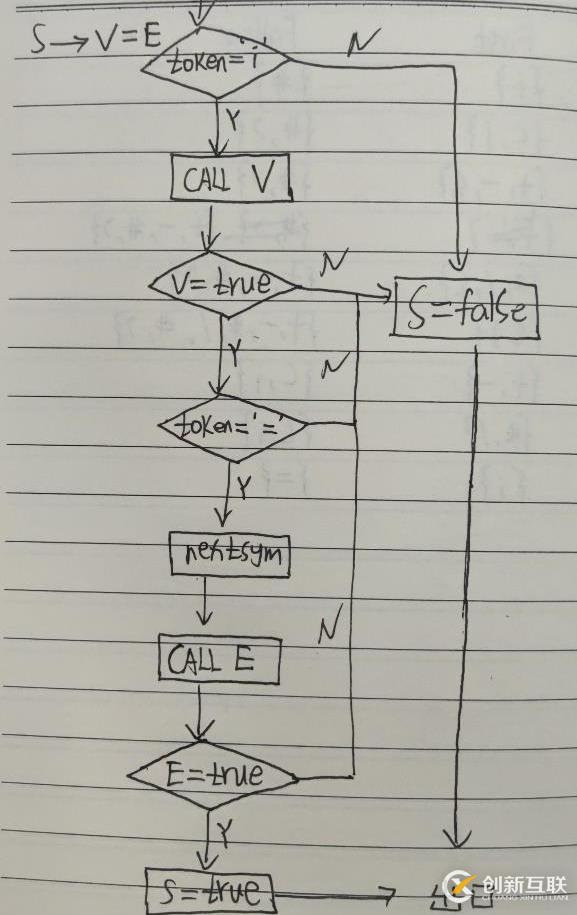 S→V=E
token='i'
N
Y
CALL V
V=true
N
S=false
Y
N
token='='
Y
nextsym
N
CALL E
E=true
Y
S=true
创新互联
CHUANG XIN HU LIAN